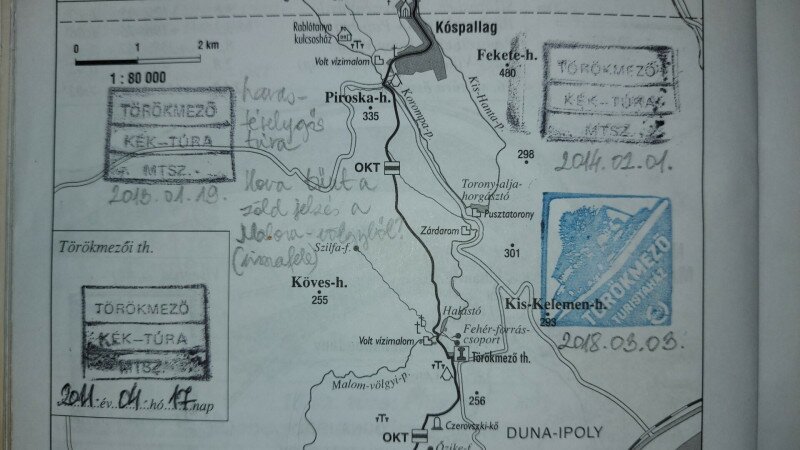 Rablótanya
kulcsosház
Kóspallag
0 1 2 km
Volt vízimalom
Fekete-h.
480
1 : 80 000
Kis-Hanta-p.
Korompa-p.
Piroska-h.
335
TÖRÖKMEZŐ
KÉK-TÚRA
MTSZ.
2013.01.19.
túra
TÖRÖKMEZŐ
KÉK-TÚRA
MTSZ.
2014.02.01.
298
OKT
Hova tűnt a
zöld jelzés a
Malom-völgyből?
(visszafelé)
Torony-alja-
horgásztó
Pusztatorony
Zárdarom
301
Szilfa-f.
Törökmezői th.
Köves-h.
255
Kis-Kelemen-h.
293
TÖRÖKMEZŐ
TURISTAHÁZ
2018.03.03.
TÖRÖKMEZŐ
KÉK-TÚRA
MTSZ.
2011. év 04. hó 17. nap
Halastó
Fehér-forrás-
csoport
Volt vízimalom
Törökmező th.
Malom-völgyi-p.
256
Czerovszki-kő
OKT
Őzike-f.
DUNA-IPOLY